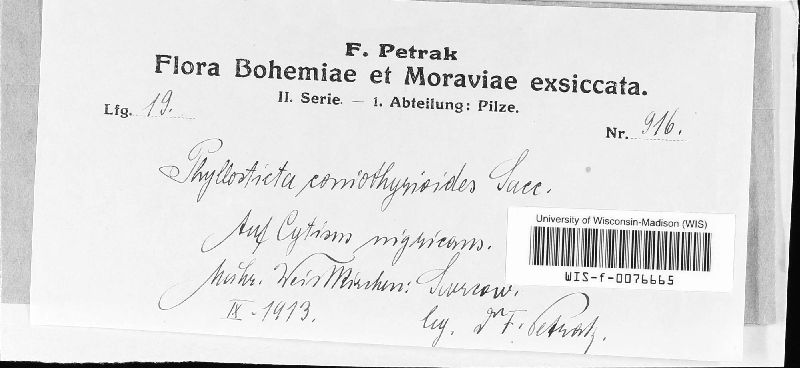 F. Petrak
Flora Bohemiae et Moraviae exsiccata.
II. Serie. — 1. Abteilung: Pilze.
Lfg. 19.
Nr. 916.
Phyllosticta coniothyrioides Sacc.
Auf Cytisus nigricans.
University of Wisconsin-Madison (WIS)
WIS-f-0076665
Mähr. Weisskirchen:
IX-1913.
leg. Dr F. Petrak.